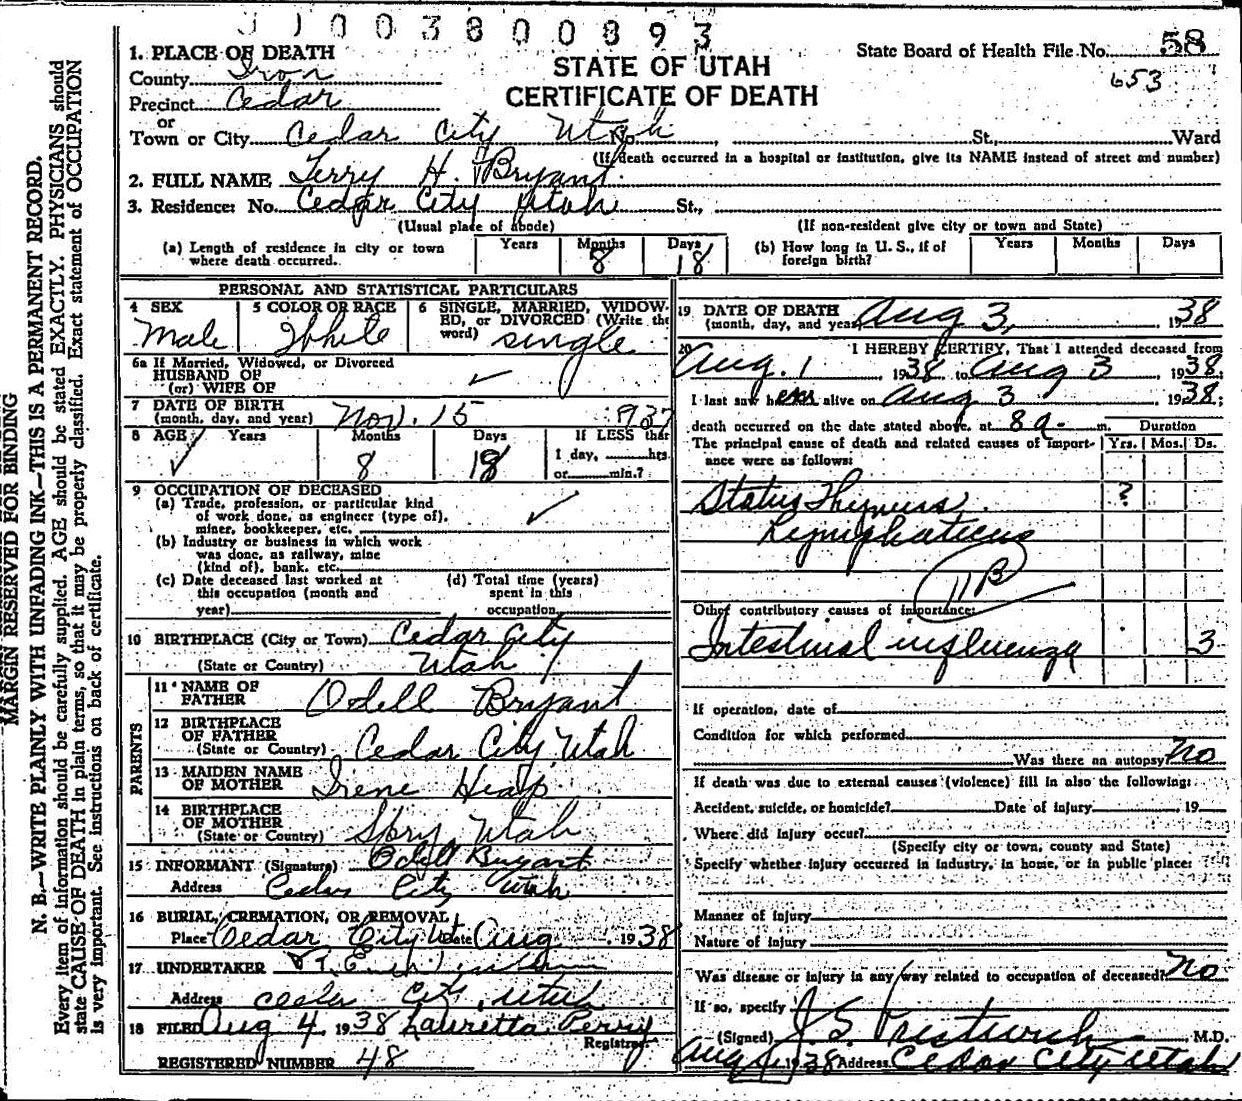 0 1 0 0 3 8 0 0 8 9 3
1. PLACE OF DEATH
County Iron
Precinct Cedar
or
Town or City Cedar City Utah No. , St., Ward
(If death occurred in a hospital or institution, give its NAME instead of street and number)
STATE OF UTAH
CERTIFICATE OF DEATH
State Board of Health File No. 58
653
2. FULL NAME Terry H. Bryant
3. Residence: No. Cedar City Utah St.,
(Usual place of abode) (If non-resident give city or town and State)
(a) Length of residence in city or town where death occurred. Years Months 8 Days 18
(b) How long in U. S., if of foreign birth? Years Months Days
PERSONAL AND STATISTICAL PARTICULARS
4 SEX Male
5 COLOR OR RACE White
6 SINGLE, MARRIED, WIDOWED, or DIVORCED (Write the word) single
6a If Married, Widowed, or Divorced
HUSBAND OF
(or) WIFE OF ✓
7 DATE OF BIRTH
(month, day, and year) Nov. 15 1937
8 AGE ✓ Years Months 8 Days 18 If LESS than
1 day, hrs.
or min.?
9 OCCUPATION OF DECEASED
(a) Trade, profession, or particular kind
of work done, as engineer (type of),
miner, bookkeeper, etc. ✓
(b) Industry or business in which work
was done, as railway, mine
(kind of), bank, etc.
(c) Date deceased last worked at
this occupation (month and
year)
(d) Total time (years)
spent in this
occupation
10 BIRTHPLACE (City or Town) Cedar City
(State or Country) Utah
PARENTS
11 NAME OF FATHER Odell Bryant
12 BIRTHPLACE OF FATHER
(State or Country) Cedar City, Utah
13 MAIDEN NAME OF MOTHER Irene Heap
14 BIRTHPLACE OF MOTHER
(State or Country) Spry Utah
15 INFORMANT (Signature) Odell Bryant
Address Cedar City Utah
16 BURIAL, CREMATION, OR REMOVAL
Place Cedar City Ut Date Aug 1938
17 UNDERTAKER
Address Cedar City, Utah
18 FILED Aug 4, 1938 Lauretta Perry
Registrar
REGISTERED NUMBER 48
19 DATE OF DEATH
(month, day, and year) Aug 3, 1938
20 I HEREBY CERTIFY, That I attended deceased from
Aug. 1, 1938 to Aug 3 1938;
I last saw him alive on Aug 3 1938;
death occurred on the date stated above, at 8 a. m. Duration
The principal cause of death and related causes of importance were as follows: Yrs. Mos. Ds.
Status Thymus ?
Lymphaticus
11B
Other contributory causes of importance:
Intestinal influenza 3
If operation, date of
Condition for which performed
Was there an autopsy? no
If death was due to external causes (violence) fill in also the following:
Accident, suicide, or homicide? Date of injury 19
Where did injury occur?
(Specify city or town, county and State)
Specify whether injury occurred in industry, in home, or in public place:
Manner of injury
Nature of injury
Was disease or injury in any way related to occupation of deceased? no
If so, specify
(Signed) J. S. Prestwich M.D.
Aug 4 1938 Address Cedar City Utah
MARGIN RESERVED FOR BINDING
N. B.—WRITE PLAINLY WITH UNFADING INK—THIS IS A PERMANENT RECORD.
Every item of information should be carefully supplied. AGE should be stated EXACTLY. PHYSICIANS should
state CAUSE OF DEATH in plain terms, so that it may be properly classified. Exact statement of OCCUPATION
is very important. See instructions on back of certificate.